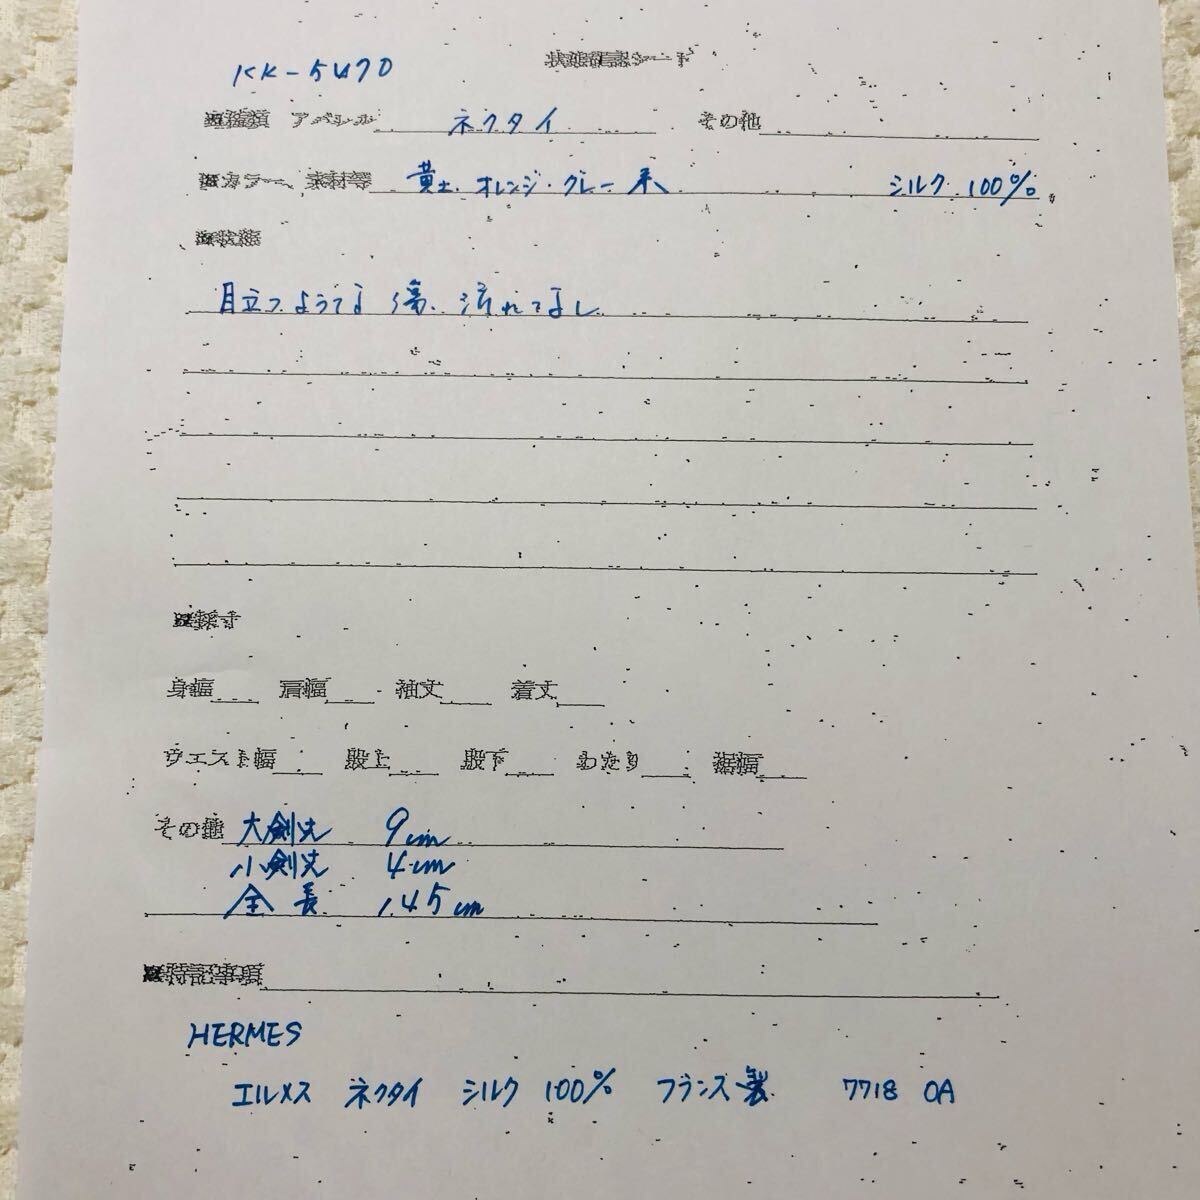 状態確認シート
KK-5470
■種類 アパレル ネクタイ その他
■カラー、素材等 黄土・オレンジ・グレー系 シルク 100%
■状態
目立つような傷、汚れてなし
■採寸
身幅 肩幅 袖丈 着丈
ウエスト幅 股上 股下 わたり 裾幅
その他 大剣丈 9cm
小剣丈 4cm
全長 145cm
■特記事項
HERMES
エルメス ネクタイ シルク 100% フランス製 7718 OA